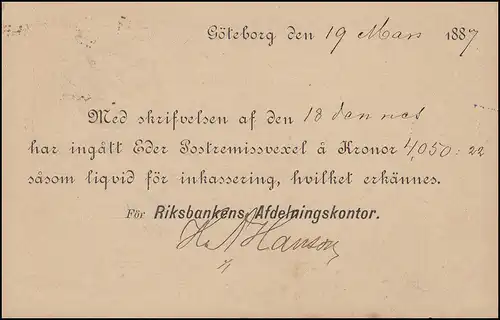 Göteborg den 19 Mars 1887
Med skrifvelsen af den 18 dennes
har ingått Eder Postremissvexel å Kronor 4,050: 22
såsom liqvid för inkassering, hvilket erkännes.
För Riksbankens Afdelningskontor.
Hanson